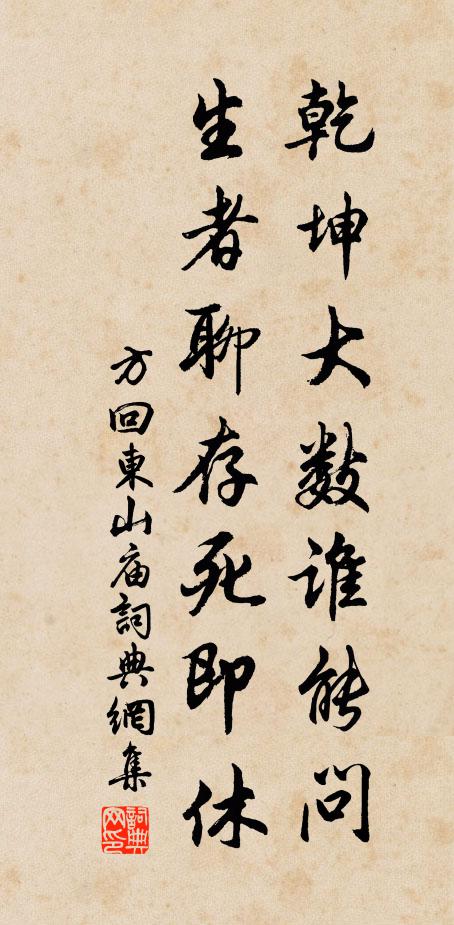 乾坤大数谁能问
生者聊存死即休
方回東山庙詞典網集
詞典网印